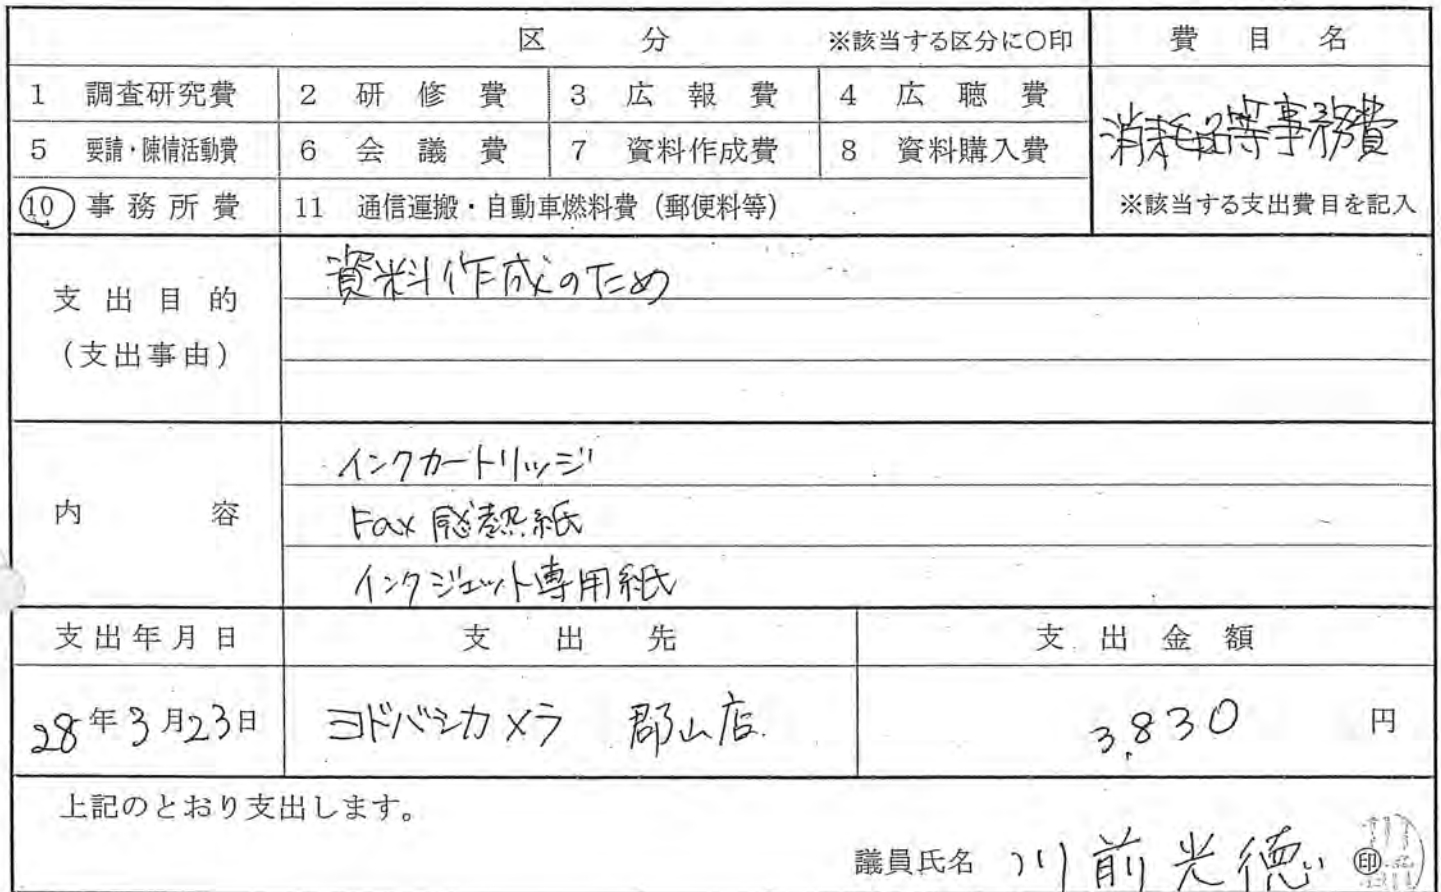 区 分 ※該当する区分に○印 費 目 名
1 調査研究費 2 研 修 費 3 広 報 費 4 広 聴 費
消耗品等事務費
5 要請・陳情活動費 6 会 議 費 7 資料作成費 8 資料購入費
10 事務所費 11 通信運搬・自動車燃料費（郵便料等） ※該当する支出費目を記入
支出目的
（支出事由）
資料作成のため
内 容
インクカートリッジ
Fax 感熱紙
インクジェット専用紙
支出年月日 支 出 先 支 出 金 額
28年3月23日 ヨドバシカメラ 郡山店 3,830 円
上記のとおり支出します。
議員氏名 川前光徳 ㊞